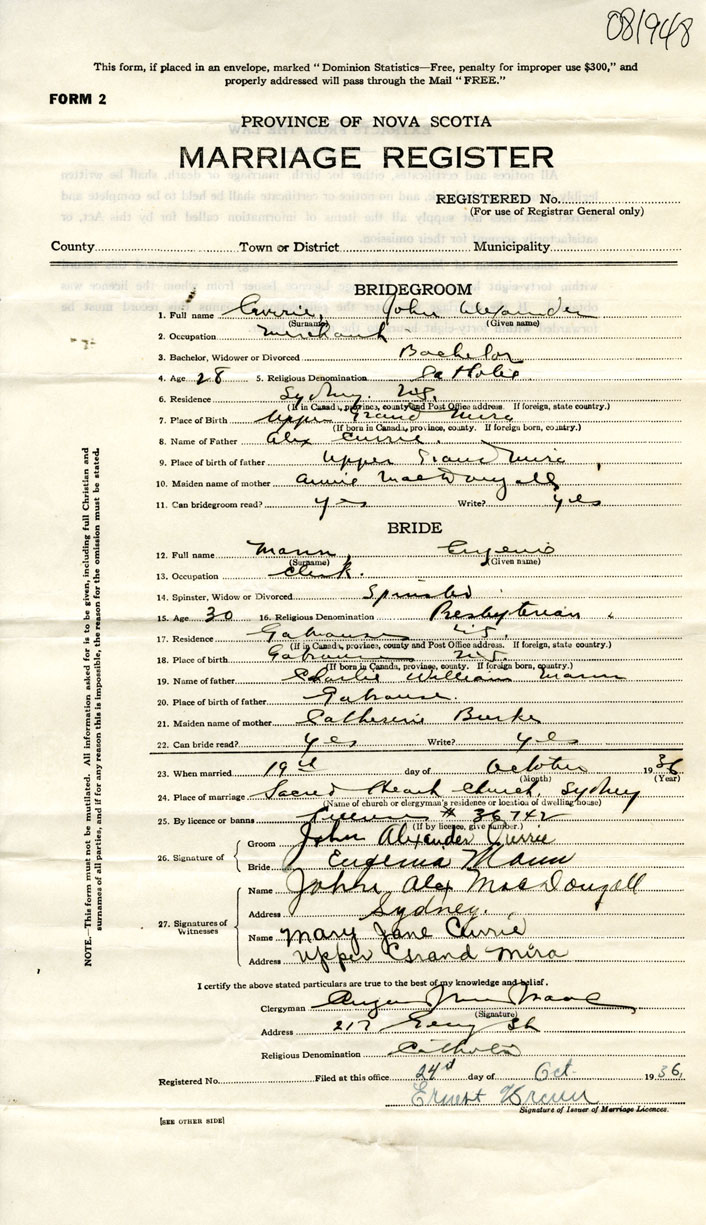 081948
This form, if placed in an envelope, marked "Dominion Statistics—Free, penalty for improper use $300," and
properly addressed will pass through the Mail "FREE."
FORM 2
PROVINCE OF NOVA SCOTIA
MARRIAGE REGISTER
REGISTERED No.
(For use of Registrar General only)
County Town or District Municipality
BRIDEGROOM
1. Full name Currie, John Alexander
(Surname) (Given name)
2. Occupation merchant
3. Bachelor, Widower or Divorced Bachelor
4. Age 28 5. Religious Denomination Catholic
6. Residence Sydney. N.S.
(If in Canada, province, county and Post Office address. If foreign, state country.)
7. Place of Birth Upper Grand Mira
(If born in Canada, province, county. If foreign born, country.)
8. Name of Father Alex Currie.
9. Place of birth of father Upper Grand Mira
10. Maiden name of mother Annie MacDougall
11. Can bridegroom read? yes Write? yes
BRIDE
12. Full name Mann, Eugenie
(Surname) (Given name)
13. Occupation Clerk.
14. Spinster, Widow or Divorced Spinster
15. Age 30 16. Religious Denomination Presbyterian
17. Residence Gabarouse N.S.
(If in Canada, province, county and Post Office address. If foreign, state country.)
18. Place of birth Gabarouse N.S.
(If born in Canada, province, county. If foreign born, country.)
19. Name of father Charlie William Mann
20. Place of birth of father Gabarouse.
21. Maiden name of mother Catherine Burke
22. Can bride read? yes Write? yes
23. When married 19th day of October 1936
(Month) (Year)
24. Place of marriage Sacred Heart Church Sydney
(Name of church or clergyman's residence or location of dwelling house)
25. By licence or banns License # 36742
(If by licence, give number.)
26. Signature of
Groom John Alexander Currie
Bride Eugenia Mann
27. Signatures of Witnesses
Name John Alex MacDougall
Address Sydney.
Name Mary Jane Currie
Address Upper Grand Mira
I certify the above stated particulars are true to the best of my knowledge and belief.
Clergyman
(Signature)
Address 217 St
Religious Denomination Catholic
Registered No. Filed at this office 24th day of Oct. 1936,
Ernest
Signature of Issuer of Marriage Licences.
[SEE OTHER SIDE]
NOTE.—This form must not be mutilated. All information asked for is to be given, including full Christian and
surnames of all parties, and if for any reason this is impossible, the reason for the omission must be stated.